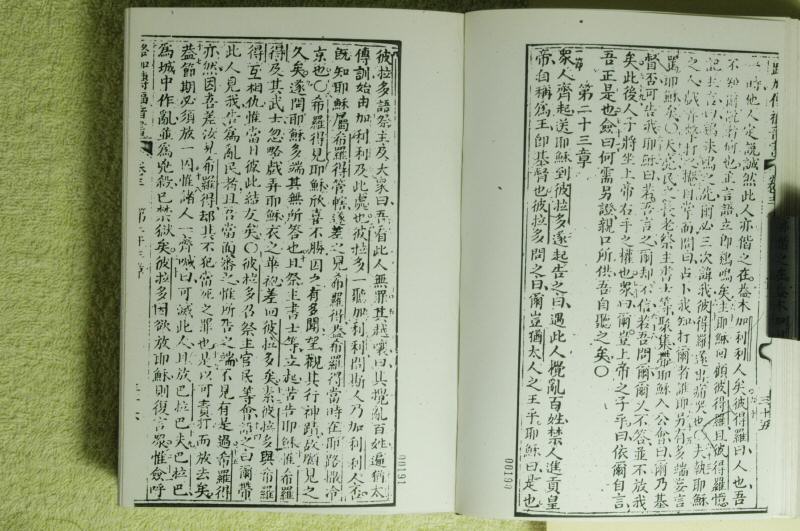 時他人定說誠然此人亦偕之在蓋亦加利利人矣彼得羅曰人也吾
不知爾說者何也正言語立即鷄鳴矣主耶穌回顧彼得羅且彼得羅憶
罵耶穌矣〇天亮民之長老祭主書士等聚集帶耶穌入公會曰爾乃基
督否可告我耶穌曰若吾言之爾却不信若吾問爾爾又不答並不放我
矣此後人子將坐上帝右手之權也眾曰爾豈上帝之子乎曰依爾自言
吾正是也僉曰何需另證親口所供吾自聽之矣〇
第二十三章
眾人齊起送耶穌到彼拉多遂起告之曰遇此人攪亂百姓禁人進貢皇
帝自稱為王即基督也彼拉多問之曰爾豈猶太人之王乎耶穌曰是也
00190
彼拉多語祭主及大眾曰吾看此人無罪其越嚷曰其攪亂百姓遍猶太
傳訓始由加利利及此處也彼拉多一聽加利利問斯人乃加利利人否
既知耶穌屬希羅得管轄遂差之見希羅得蓋希羅得當時在耶路撒冷
京也〇希羅得見耶穌欣喜不勝因之有多聞望觀其行神蹟故願見之
久矣遂問耶穌多端其無所答也且祭主書士等立起苦告耶穌惟希羅
得及其武士忽略戲弄耶穌衣之華袍差回彼拉多矣素彼拉多與希羅
得互相仇惟當日彼此結友矣〇彼拉多召祭主官民等會語之曰爾帶
此人見我告為亂民者且吾當面審之惟所告之端不見有是過希羅得
亦然因吾差汝見希羅得却其不犯當死之罪也是以可責打而放去矣
蓋節期必須放一囚惟諸人一齊喊曰可滅此人且放巴拉巴夫巴拉巴
為城中作亂並為兇殺已禁獄矣彼拉多因欲放耶穌則復言眾惟僉呼
路加傳福音書 卷三 第二十三章
00191